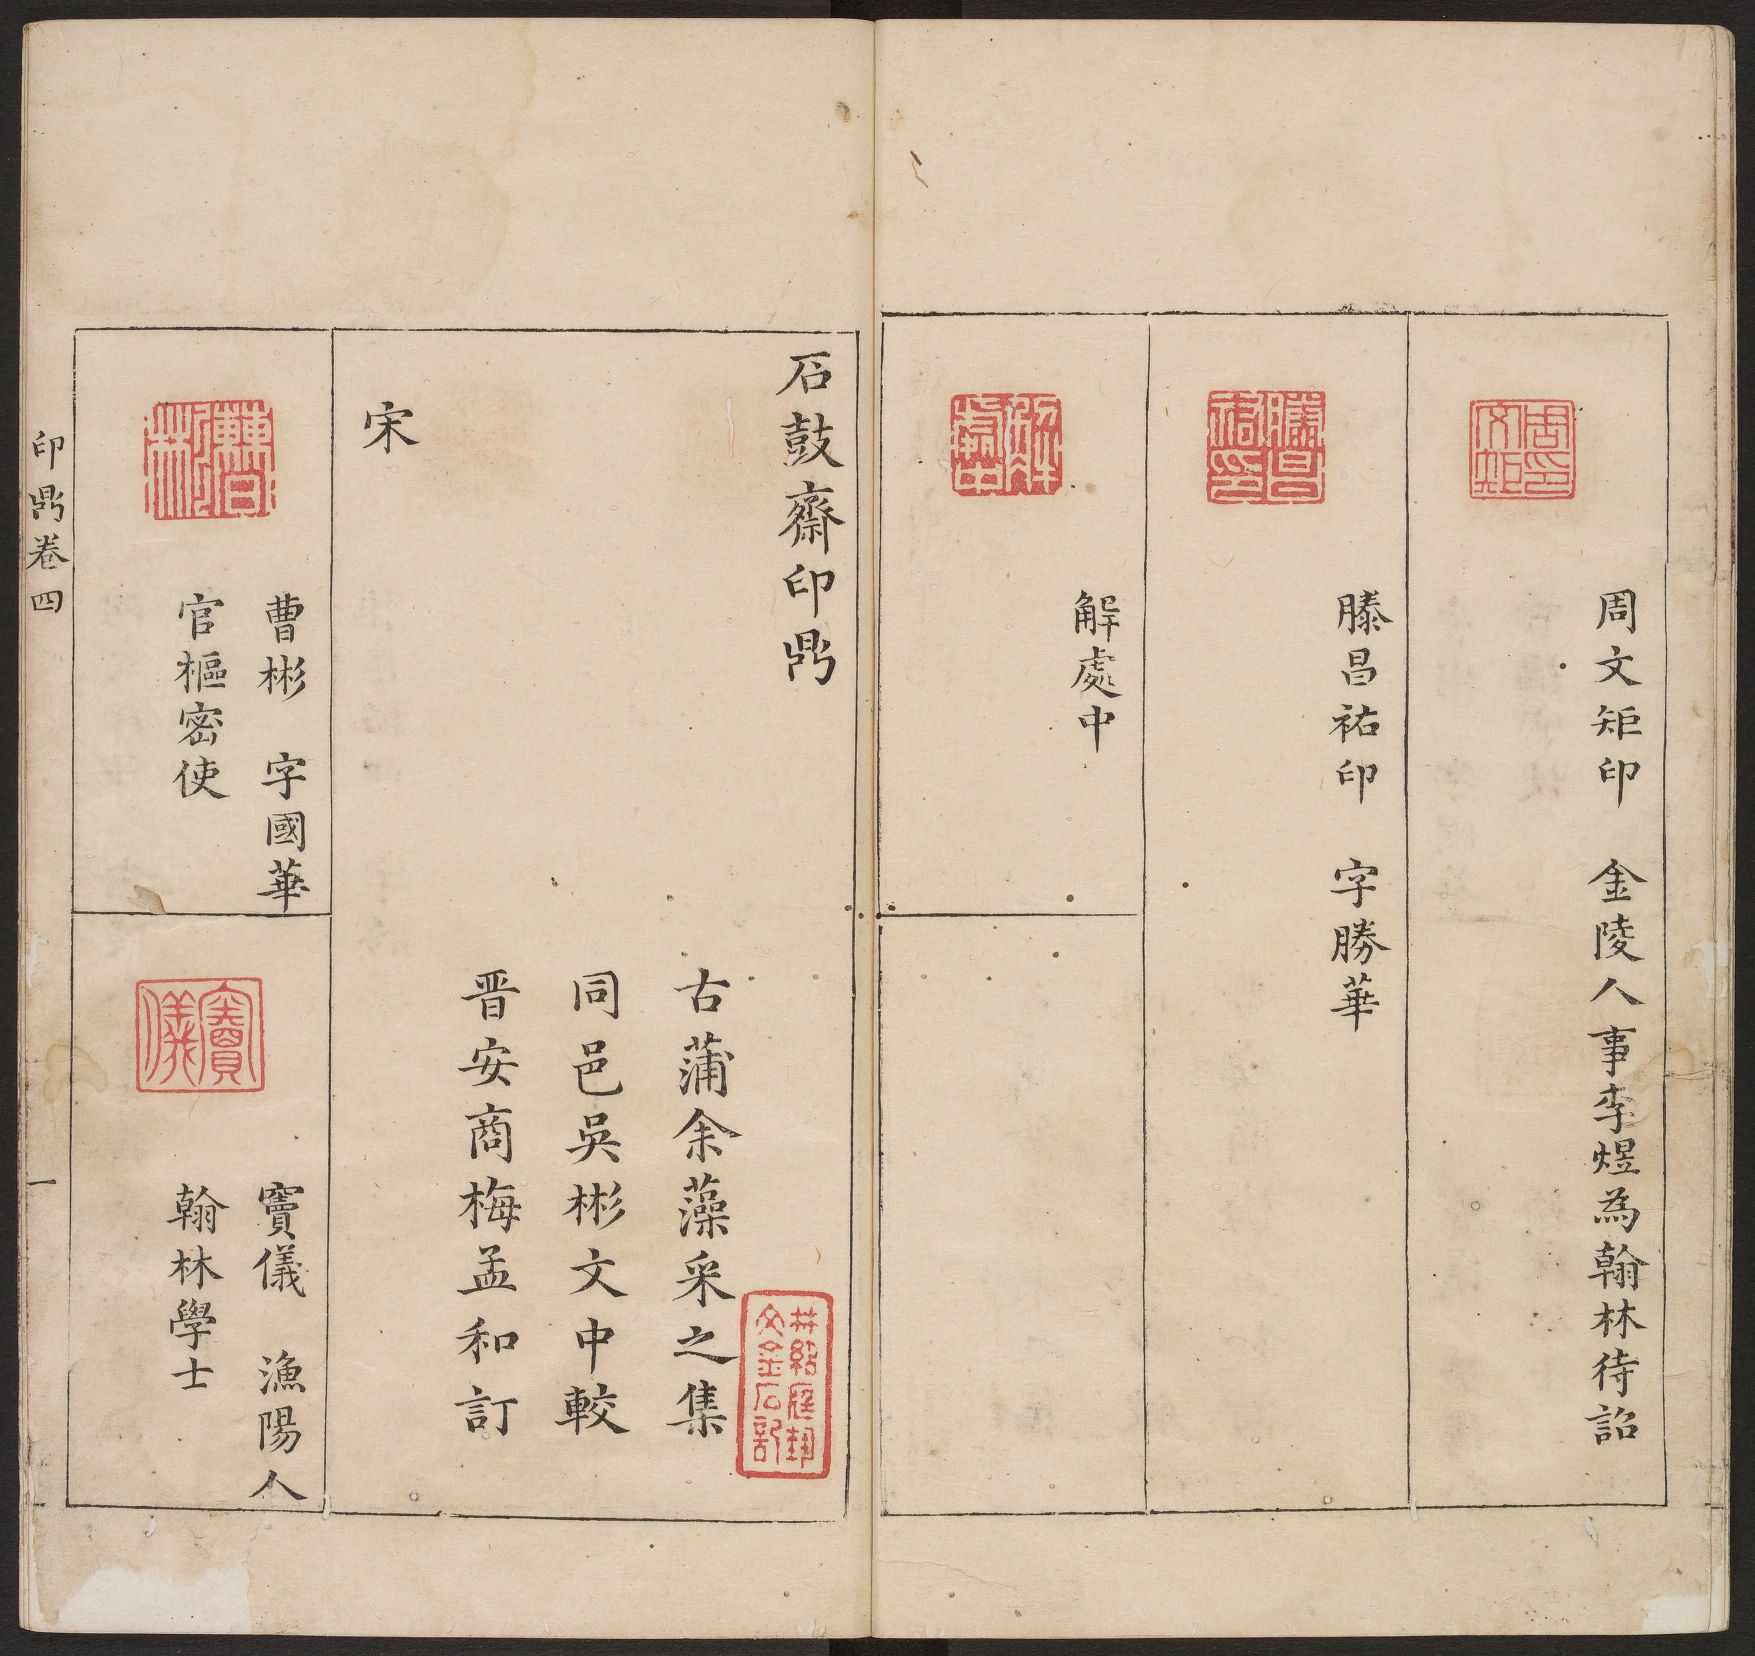 周文矩印　金陵人事李煜為翰林待詔
滕昌祐印　字勝華
解處中
石鼓齋印鼎
古蒲余藻采之集
同邑吳彬文中較
晋安商梅孟和訂
宋
曹彬　字國華
官樞密使
竇儀　漁陽人
翰林學士
印鼎卷四
一
周文矩印
滕昌祐印
曹彬
竇儀